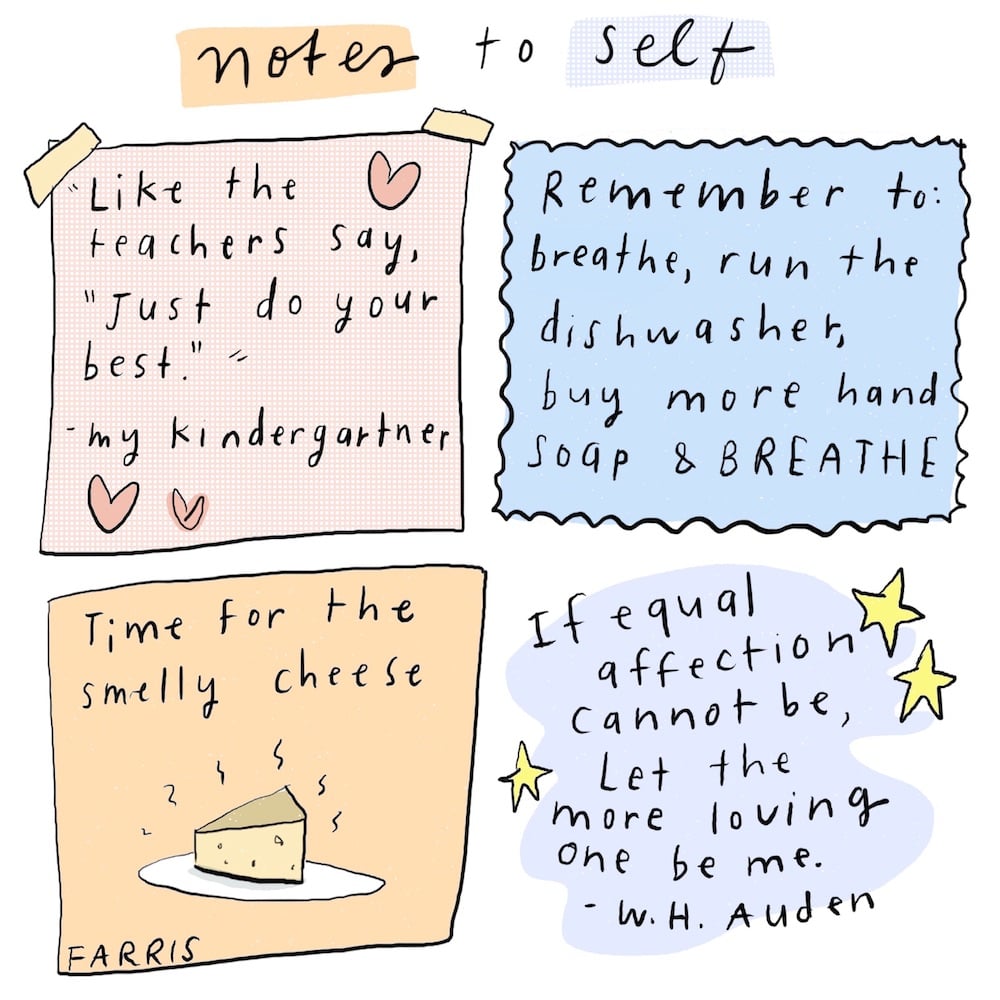 notes to self
"Like the
teachers say,
"Just do your
best." "
-my kindergartner
Remember to:
breathe, run the
dishwasher,
buy more hand
soap & BREATHE
Time for the
smelly cheese
FARRIS
If equal
affection
cannot be,
Let the
more loving
one be me.
- W. H. Auden